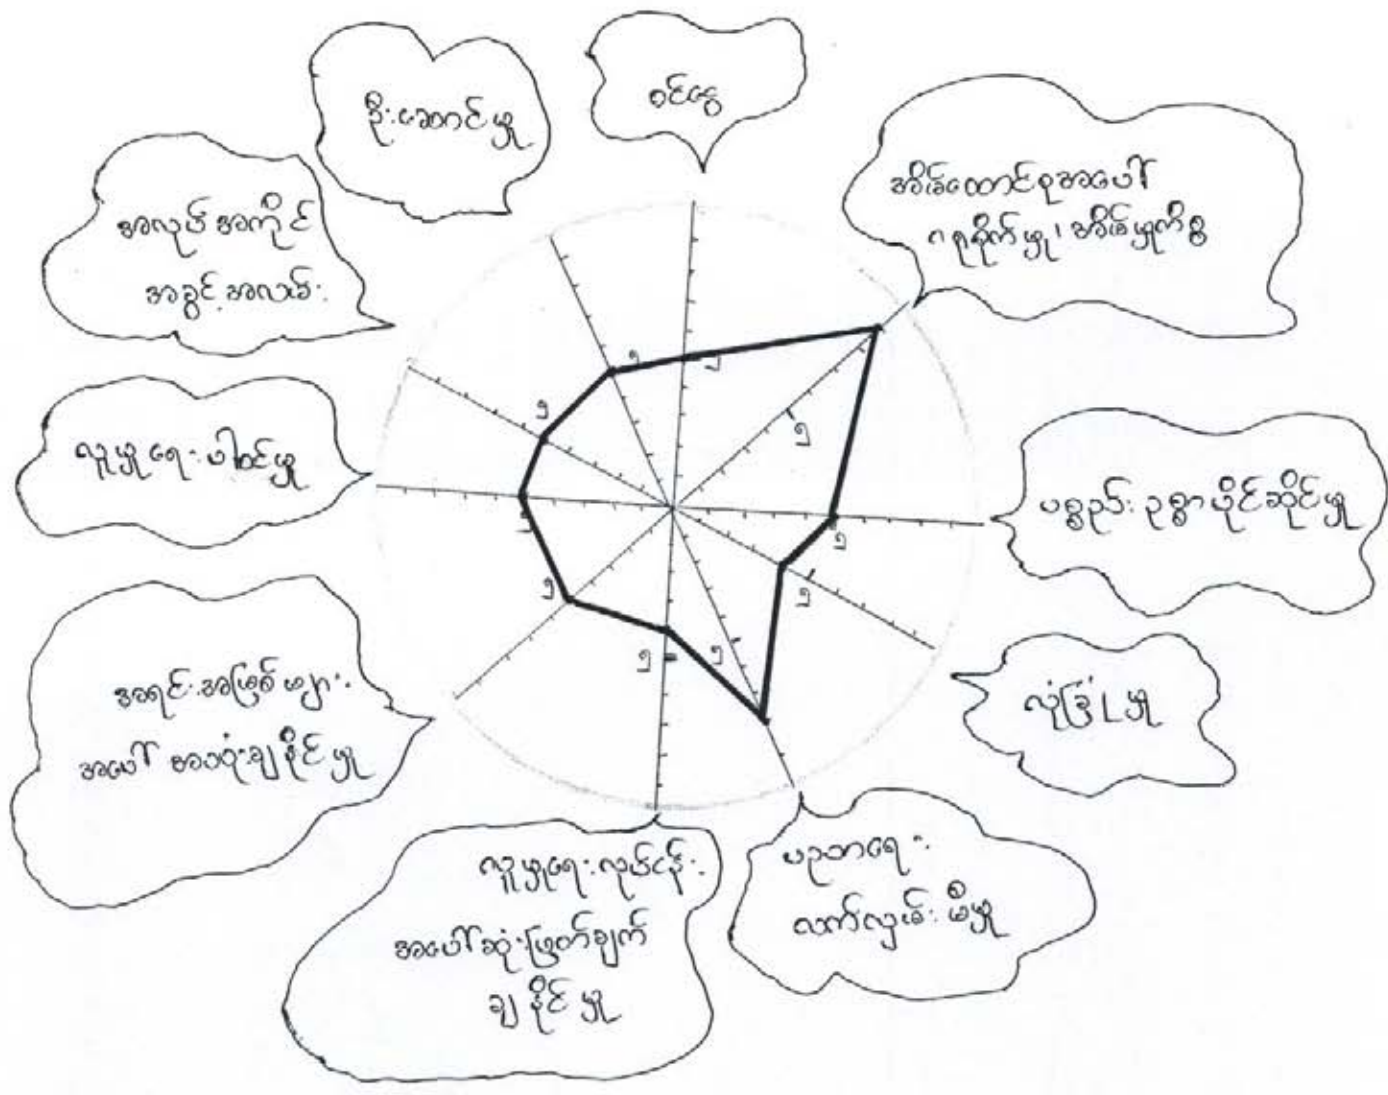 ဝင်ငွေ
အိမ်ထောင်စုအပေါ်
ဂရုစိုက်မှု၊ အိမ်မှုကိစ္စ
ပစ္စည်းဥစ္စာပိုင်ဆိုင်မှု
လုံခြုံမှု
ပညာရေး
လက်လှမ်းမီမှု
လူမှုရေးလုပ်ငန်း
အပေါ်ဆုံးဖြတ်ချက်
ချနိုင်မှု
အရင်းအမြစ်များ
အပေါ် အသုံးချနိုင်မှု
လူမှုရေးပါဝင်မှု
အလုပ်အကိုင်
အခွင့်အလမ်း
ဦးဆောင်မှု
၅
၅
၅
၅
၅
၅
၅
၅
၅
၅